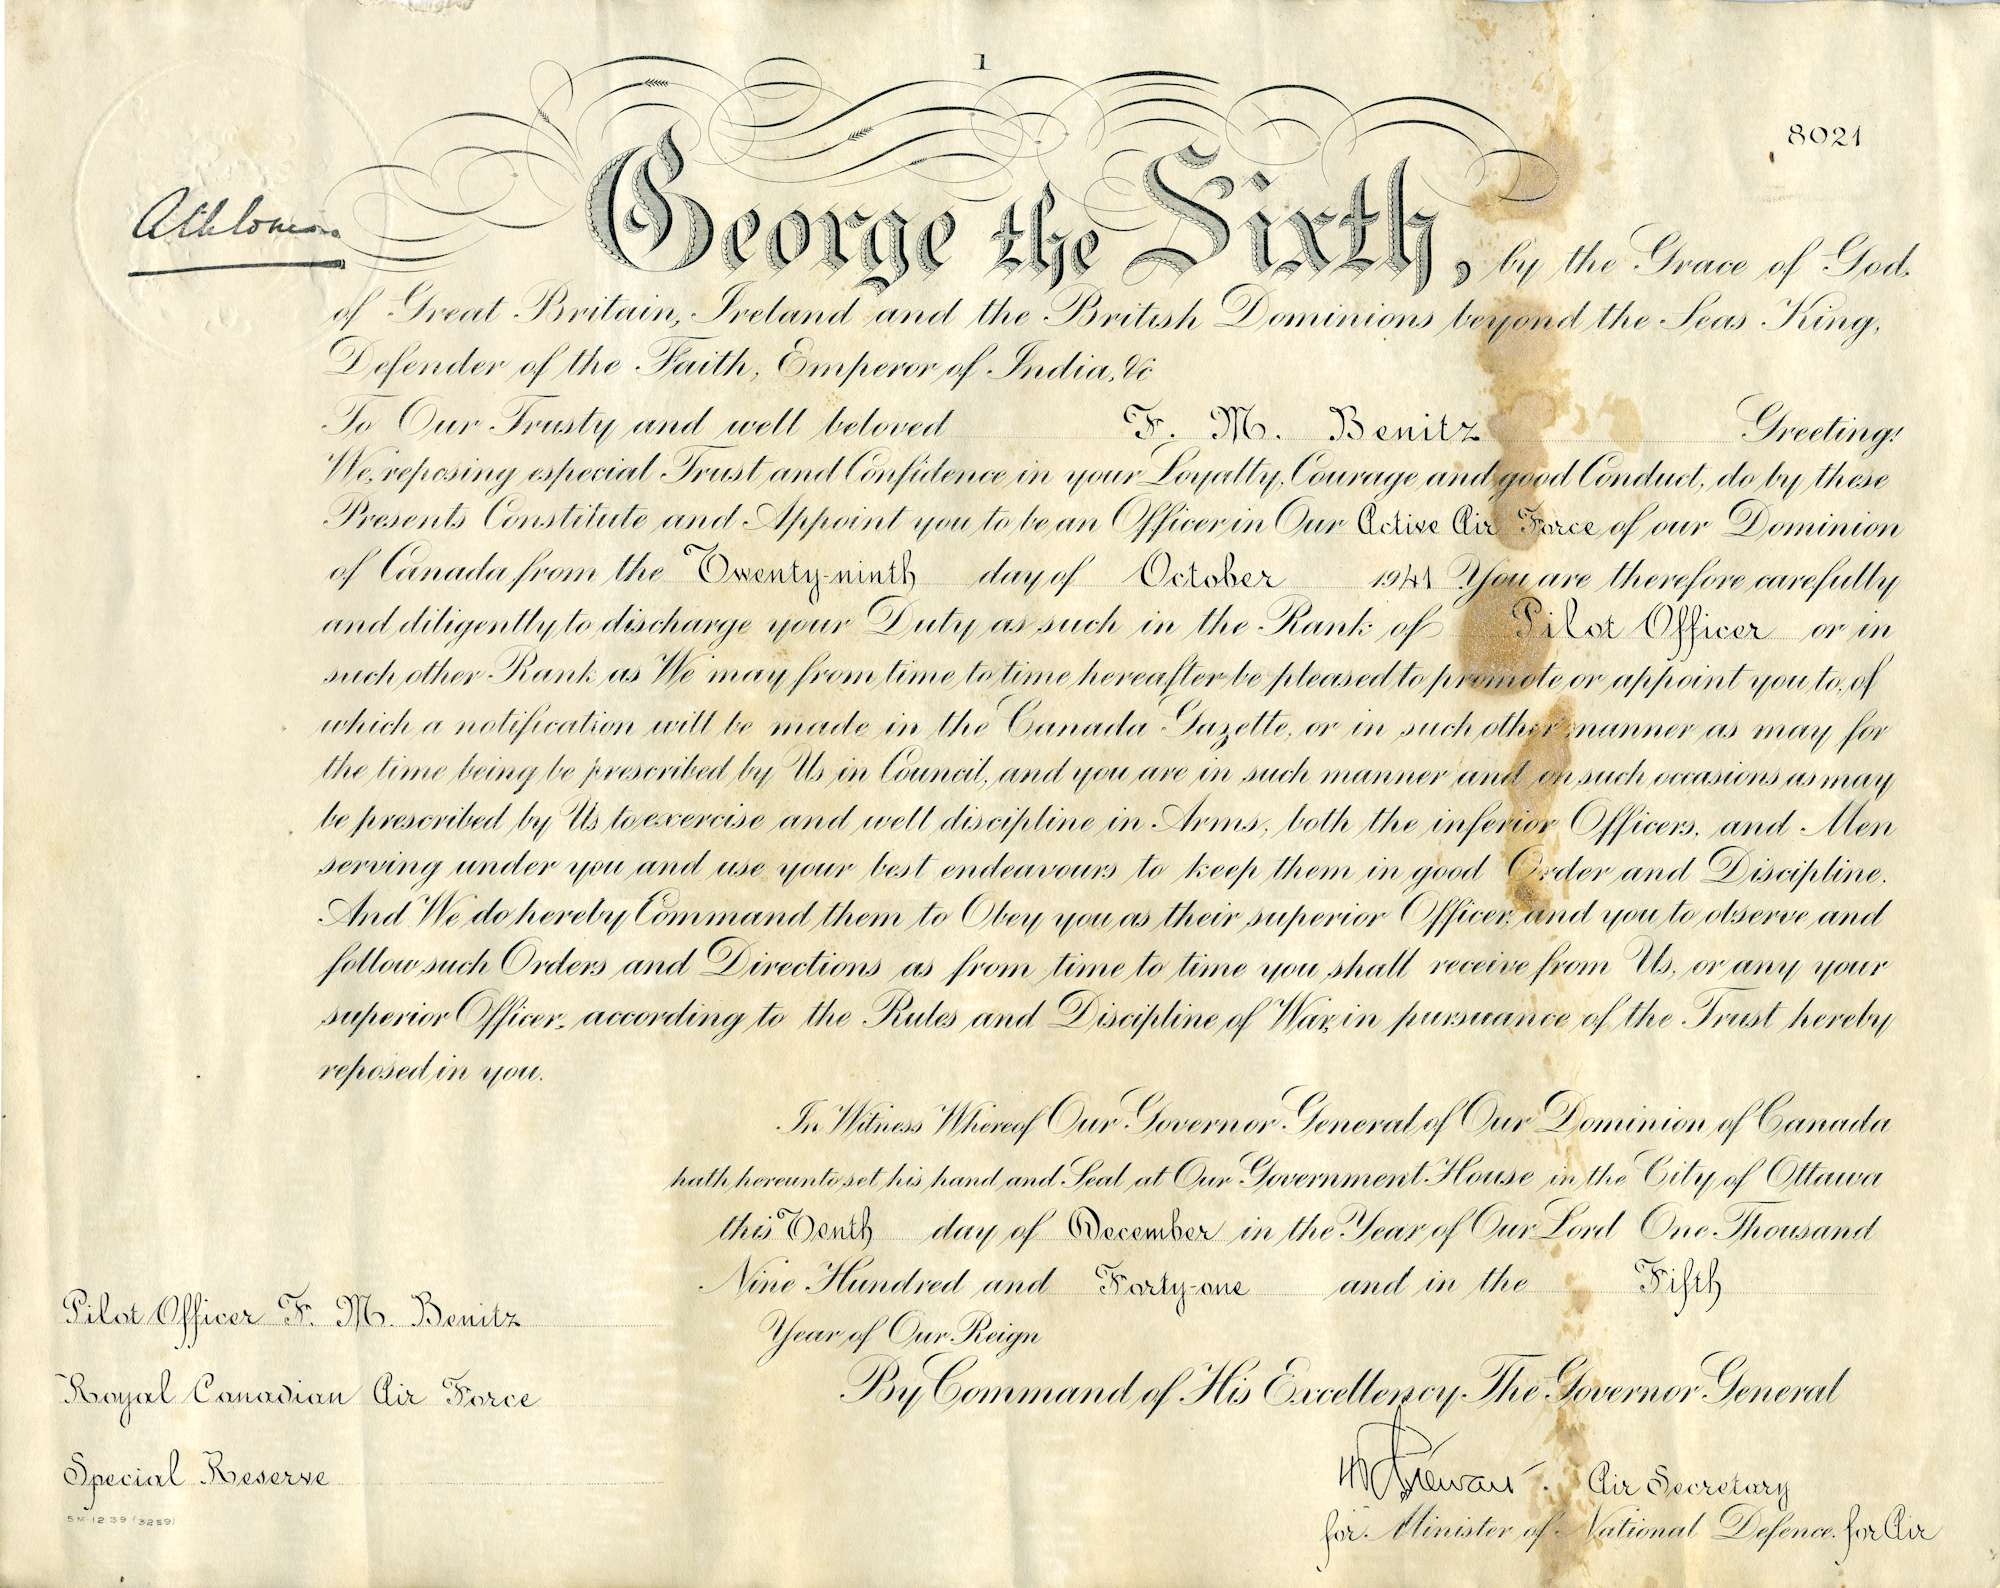 1
8021
Athlone.
George the Sixth, by the Grace of God,
of Great Britain, Ireland and the British Dominions beyond the Seas King,
Defender of the Faith, Emperor of India, &c
To Our Trusty and well beloved F. M. Benitz Greeting!
We, reposing especial Trust and Confidence in your Loyalty, Courage and good Conduct, do by these
Presents Constitute and Appoint you to be an Officer in Our Active Air Force of our Dominion
of Canada from the Twenty-ninth day of October 1941 You are therefore carefully
and diligently to discharge your Duty as such in the Rank of Pilot Officer or in
such other Rank as We may from time to time hereafter be pleased to promote or appoint you to, of
which a notification will be made in the Canada Gazette, or in such other manner as may for
the time being be prescribed by Us in Council, and you are in such manner and on such occasions as may
be prescribed by Us to exercise and well discipline in Arms, both the inferior Officers, and Men
serving under you and use your best endeavours to keep them in good Order and Discipline.
And We do hereby Command them to Obey you as their superior Officer, and you to observe and
follow such Orders and Directions as from time to time you shall receive from Us, or any your
superior Officer, according to the Rules and Discipline of War, in pursuance of the Trust hereby
reposed in you.
In Witness Whereof Our Governor General of Our Dominion of Canada
hath hereunto set his hand and Seal at Our Government House in the City of Ottawa
this Tenth day of December in the Year of Our Lord One Thousand
Nine Hundred and Forty-one and in the Fifth
Year of Our Reign
By Command of His Excellency The Governor General
Air Secretary
for Minister of National Defence for Air
Pilot Officer F. M. Benitz
Royal Canadian Air Force
Special Reserve
5M-12-39 (3259)